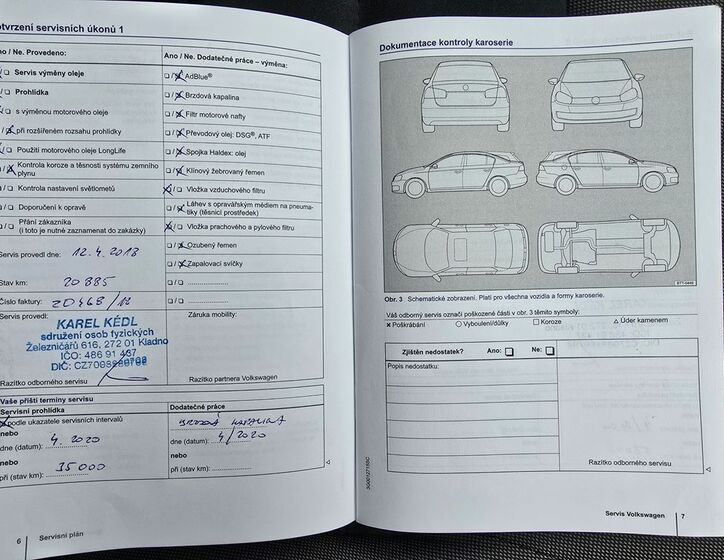 otvrzení servisních úkonů 1
no / Ne. Provedeno:
Servis výměny oleje
Prohlídka
s výměnou motorového oleje
při rozšířeném rozsahu prohlídky
Použití motorového oleje LongLife
Kontrola koroze a těsnosti systému zemního
plynu
Kontrola nastavení světlometů
Doporučení k opravě
Přání zákazníka
(i toto je nutné zaznamenat do zakázky)
Servis provedl dne: 12.4.2018
Stav km: 20 885
Číslo faktury: 20468/18
Servis provedl:
KAREL KÉDL
sdružení osob fyzických
Železničářů 616, 272 01 Kladno
IČO: 486 91 437
DIČ:
Razítko odborného servisu
Ano / Ne. Dodatečné práce – výměna:
AdBlue®
Brzdová kapalina
Filtr motorové nafty
Převodový olej: DSG®, ATF
Spojka Haldex: olej
Klínový žebrovaný řemen
Vložka vzduchového filtru
Láhev s opravářským médiem na pneuma-
tiky (těsnicí prostředek)
Vložka prachového a pylového filtru
Ozubený řemen
Zapalovací svíčky
Záruka mobility:
Razítko partnera Volkswagen
Vaše příští termíny servisu
Servisní prohlídka
podle ukazatele servisních intervalů
nebo
dne (datum): 4. 2020
nebo
při (stav km): 35 000
Dodatečné práce
BRZDOVÁ KAPALINA
dne (datum): 4/2020
nebo
při (stav km):
6 Servisní plán
Dokumentace kontroly karoserie
BTT-0449
Obr. 3 Schematické zobrazení. Platí pro všechna vozidla a formy karoserie.
Váš odborný servis označí poškozené části v obr. 3 těmito symboly:
× Poškrábání ○ Vyboulení/důlky □ Koroze △ Úder kamenem
Zjištěn nedostatek? Ano: □ Ne: □
Popis nedostatku:
Razítko odborného servisu
3G0012715SC
Servis Volkswagen 7